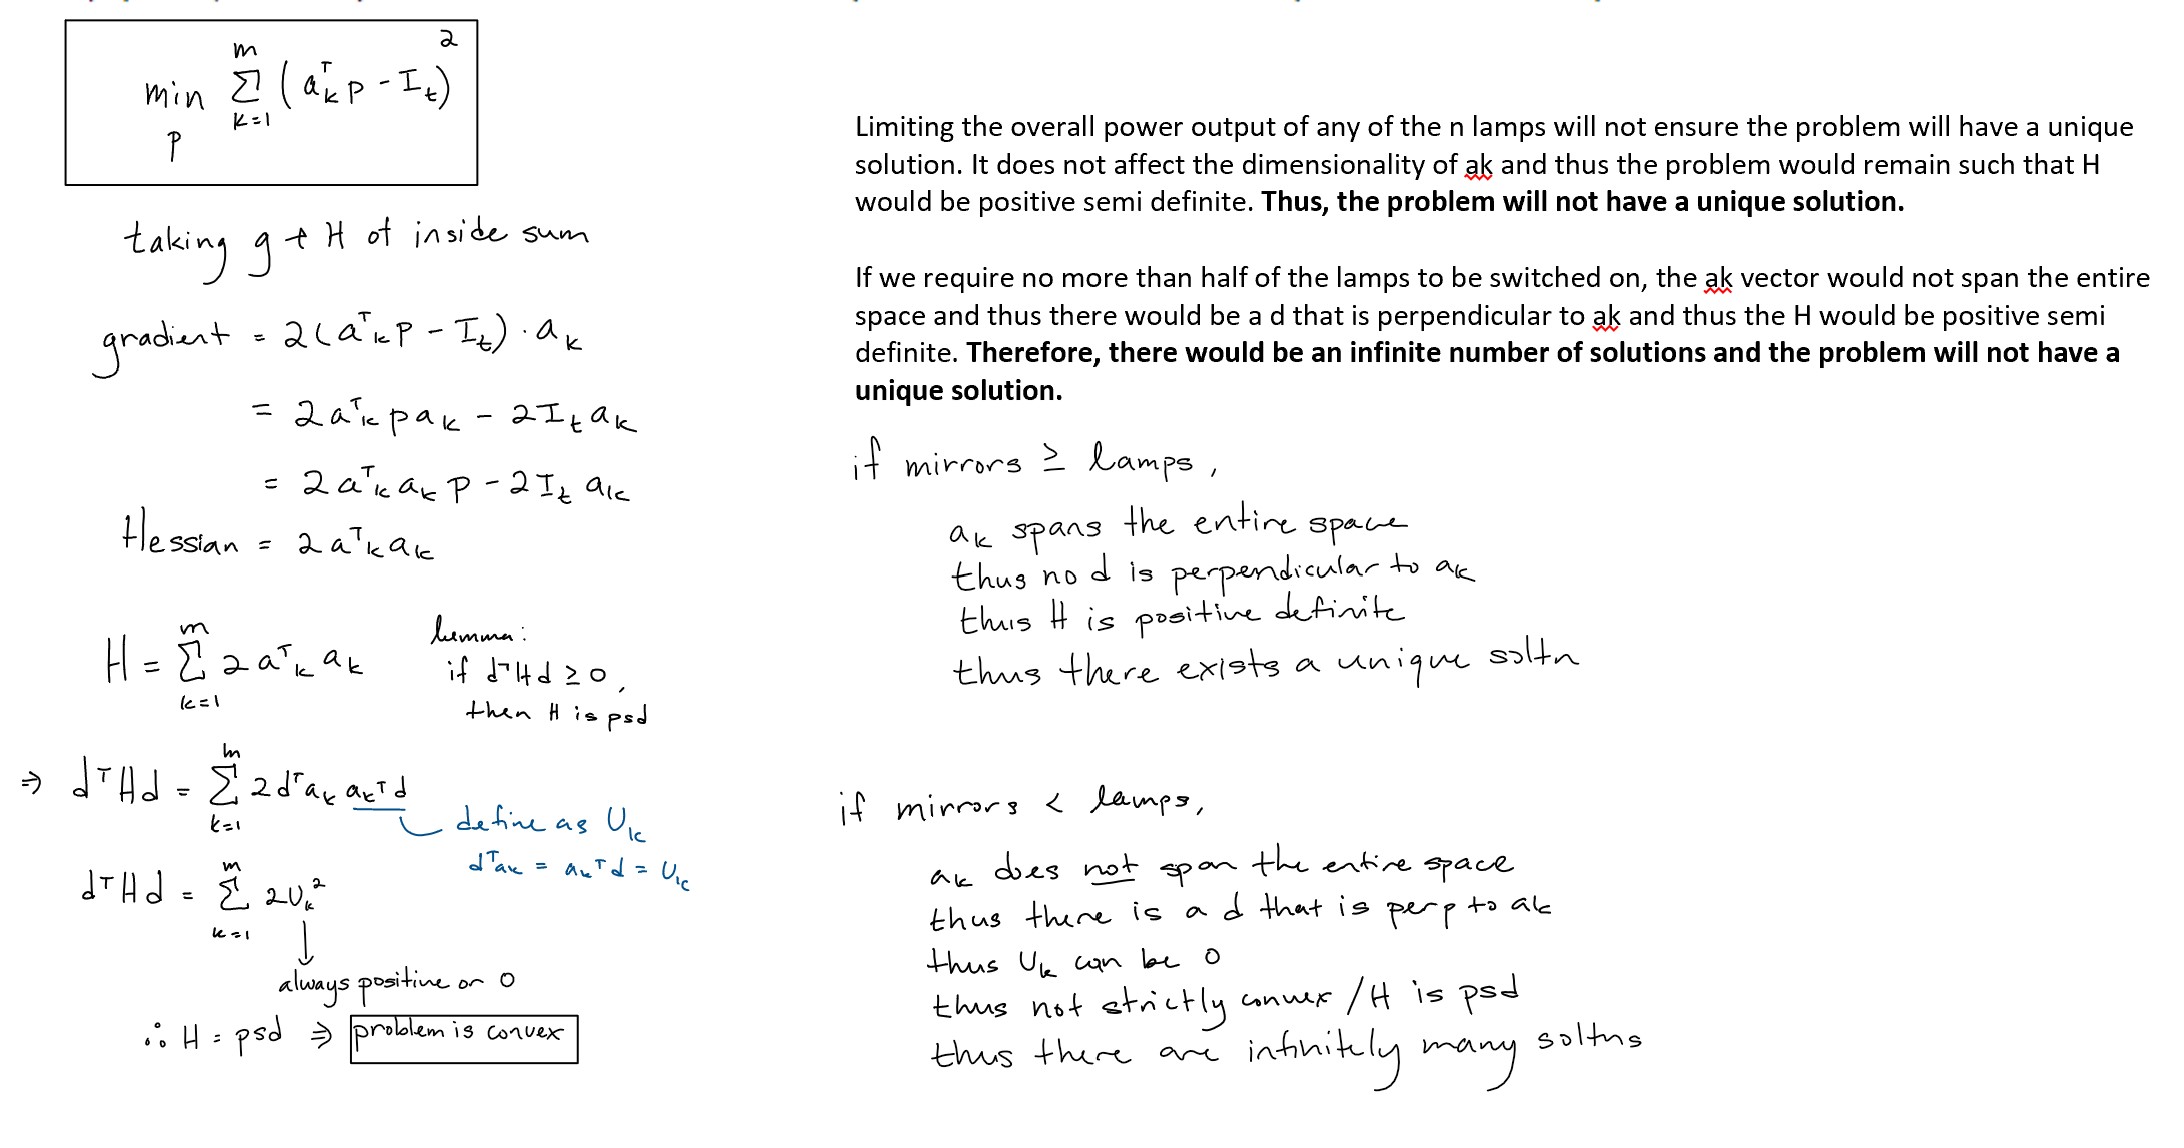 min Σ (aₖᵀp - Iₜ)²
p k=1 m
taking g + H of inside sum
gradient = 2(aᵀₖp - Iₜ) · aₖ
= 2aᵀₖpaₖ - 2Iₜaₖ
= 2aᵀₖaₖp - 2Iₜaₖ
Hessian = 2aᵀₖaₖ
H = Σ 2aᵀₖaₖ
m k=1
lemma:
if dᵀHd ≥ 0,
then H is psd
⇒ dᵀHd = Σ 2dᵀaₖaₖᵀd
m k=1
define as Uₖ
dᵀaₖ = aₖᵀd = Uₖ
dᵀHd = Σ 2Uₖ²
m k=1
always positive or 0
∴ H = psd ⇒ problem is convex
Limiting the overall power output of any of the n lamps will not ensure the problem will have a unique
solution. It does not affect the dimensionality of ak and thus the problem would remain such that H
would be positive semi definite. Thus, the problem will not have a unique solution.
If we require no more than half of the lamps to be switched on, the ak vector would not span the entire
space and thus there would be a d that is perpendicular to ak and thus the H would be positive semi
definite. Therefore, there would be an infinite number of solutions and the problem will not have a
unique solution.
if mirrors ≥ lamps,
aₖ spans the entire space
thus no d is perpendicular to aₖ
thus H is positive definite
thus there exists a unique soltn
if mirrors < lamps,
aₖ does not span the entire space
thus there is a d that is perp to aₖ
thus Uₖ can be 0
thus not strictly convex / H is psd
thus there are infinitely many soltns